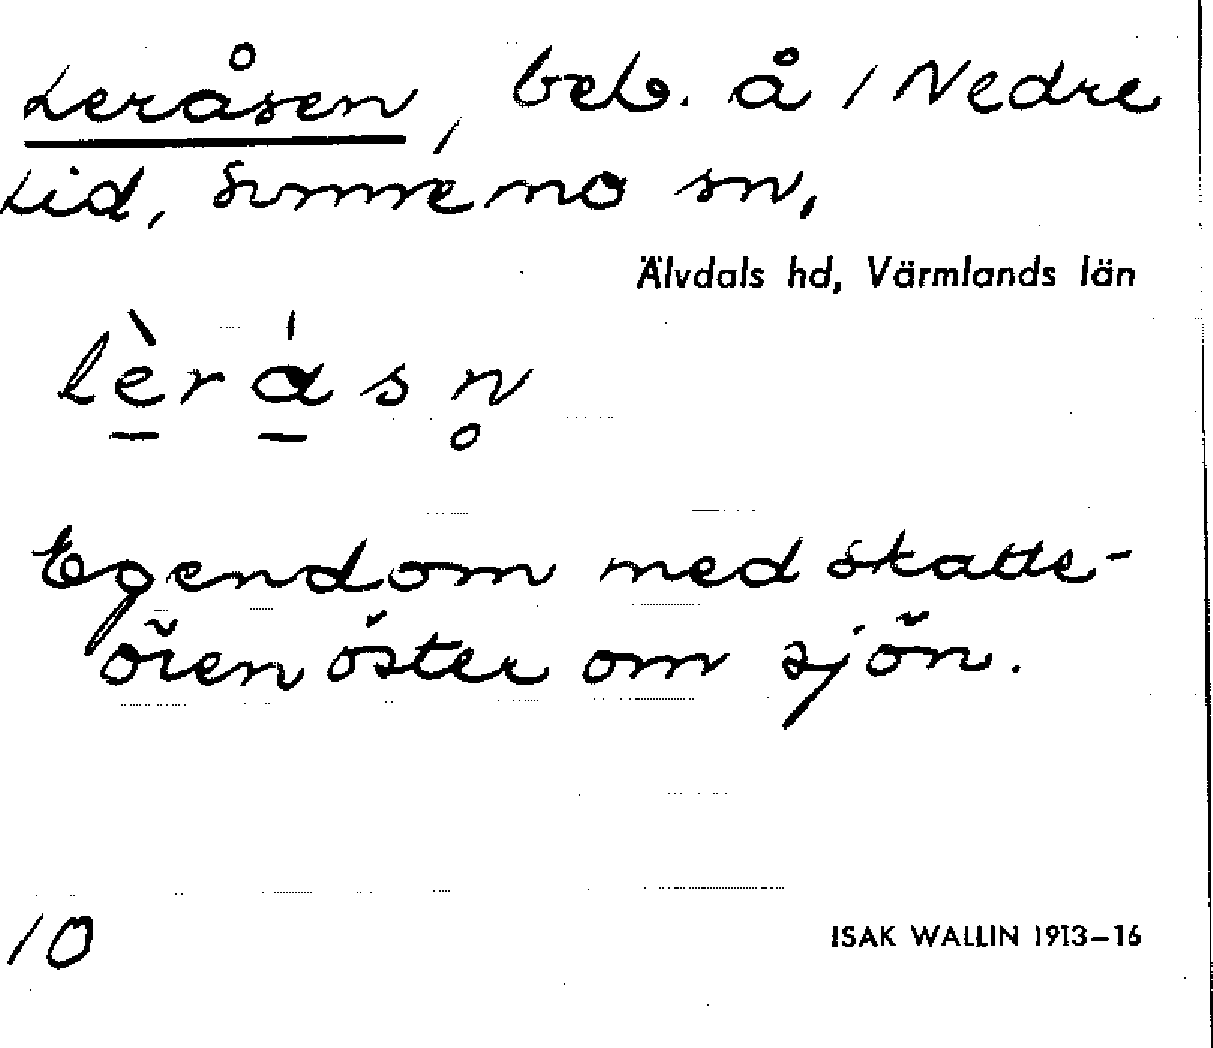 Leråsen, beb. å 1 Nedre
Lid, Sunnemo sn,
Älvdals hd, Värmlands län
lèråsn̥
Egendom med skatte-
ören öster om sjön.
10
ISAK WALLIN 1913–16